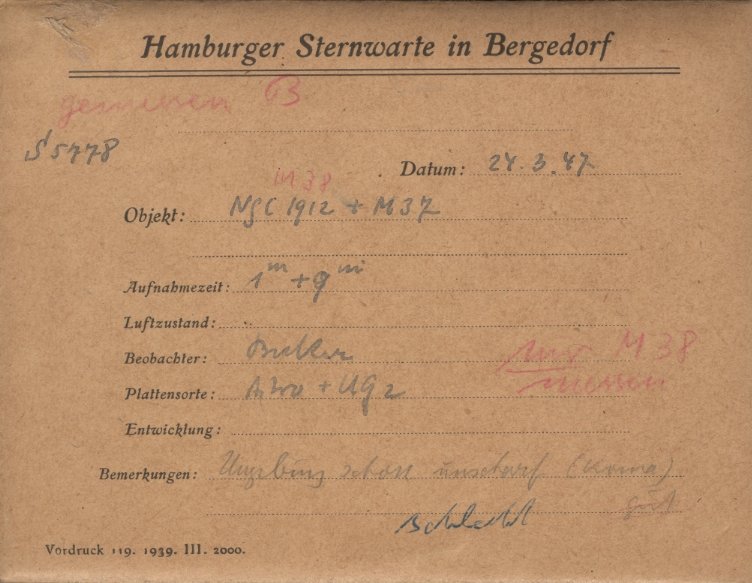 Hamburger Sternwarte in Bergedorf
gemessen B
S 5778
Datum: 24.3.47
M 38
Objekt: NGC 1912 + M 37
Aufnahmezeit: 1ᵐ + 9ᵐ
Luftzustand:
Beobachter:
nur M 38
Plattensorte: Astro + UG 2
messen
Entwicklung:
Bemerkungen: Umgebung schon unscharf (Koma)
schlecht gut
Vordruck 119. 1939. III. 2000.